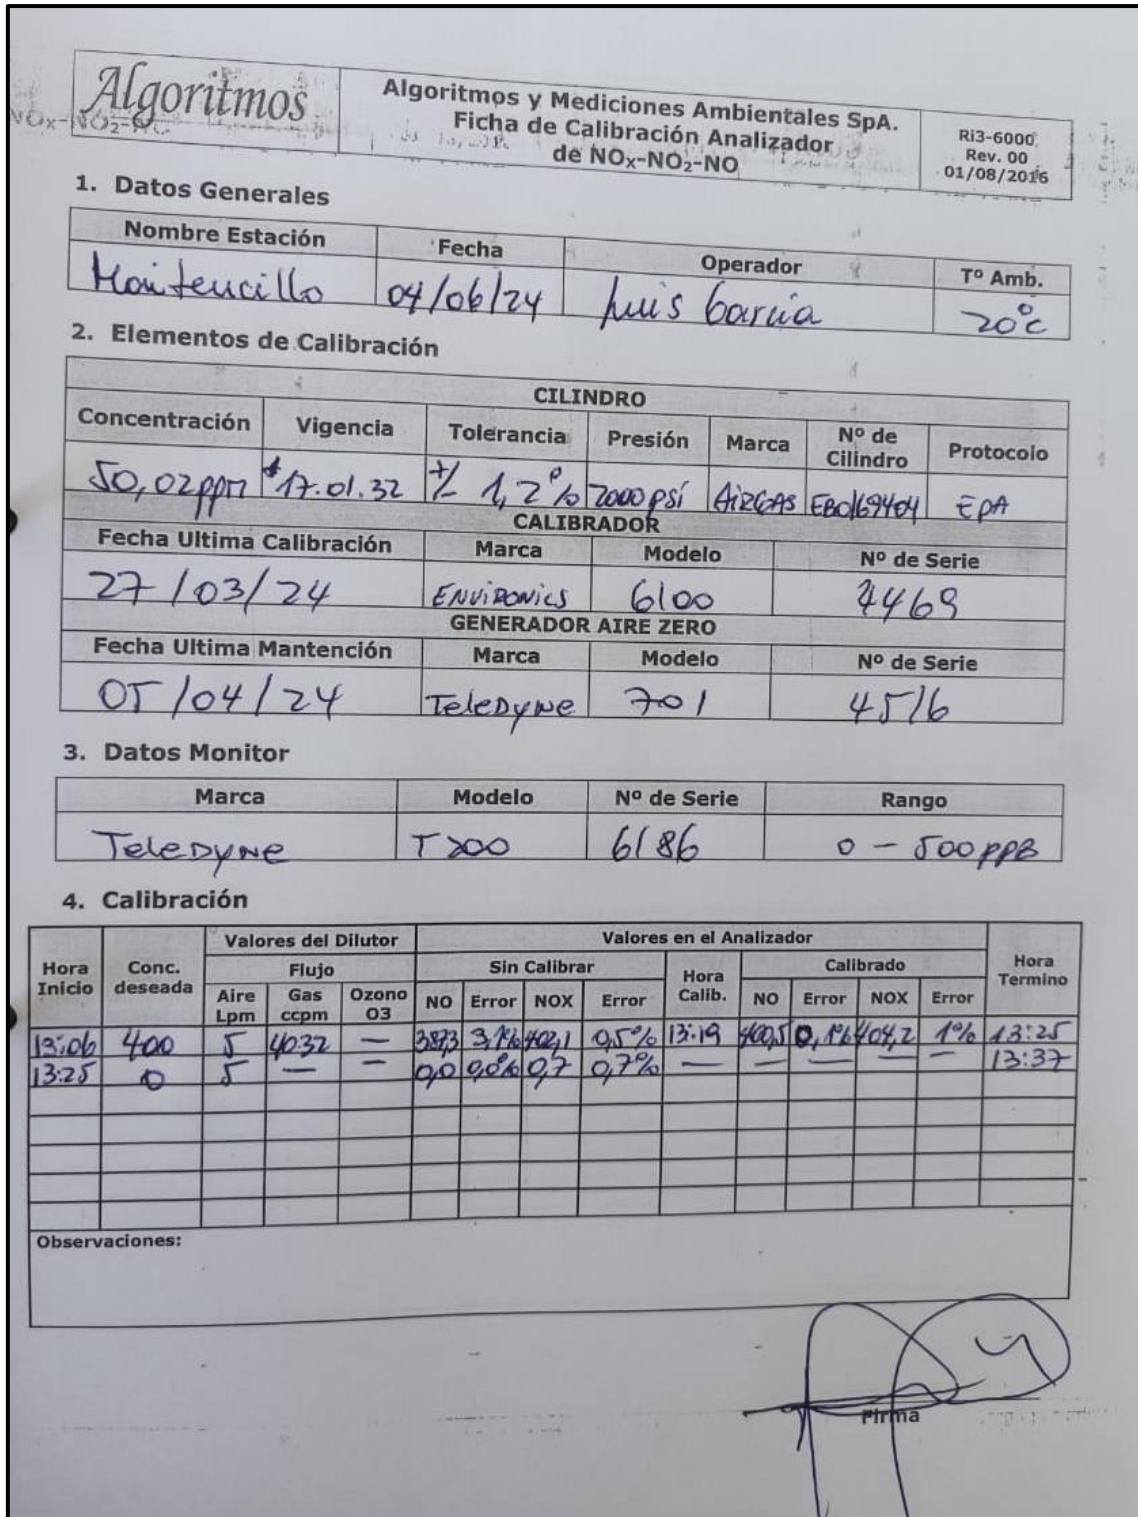 Algoritmos
Algoritmos y Mediciones Ambientales SpA.
Ficha de Calibración Analizador
de NOx-NO2-NO
Ri3-6000
Rev. 00
01/08/2016
1. Datos Generales
Nombre Estación Fecha Operador Tº Amb.
04/06/24 Luis García 20°C
2. Elementos de Calibración
CILINDRO
Concentración Vigencia Tolerancia Presión Marca Nº de Cilindro Protocolo
50,02ppm 17.01.32 +/- 1,2% 2000 psi AIRGAS EB0169404 EPA
CALIBRADOR
Fecha Ultima Calibración Marca Modelo Nº de Serie
27/03/24 ENVIRONICS 6100 4469
GENERADOR AIRE ZERO
Fecha Ultima Mantención Marca Modelo Nº de Serie
05/04/24 TeleDyne 701 4516
3. Datos Monitor
Marca Modelo Nº de Serie Rango
TeleDyne T200 6186 0 - 500 PPB
4. Calibración
Valores del Dilutor Valores en el Analizador
Hora Inicio Conc. deseada Flujo Sin Calibrar Hora Calib. Calibrado Hora Termino
Aire Lpm Gas ccpm Ozono O3 NO Error NOX Error NO Error NOX Error
13:06 400 5 40.32 — 387,3 3,1% 402,1 0,5% 13:19 400,5 0,1% 404,2 1% 13:25
13:25 0 5 — — 0,0 0,0% 0,7 0,7% — — — — — 13:37
Observaciones:
Firma